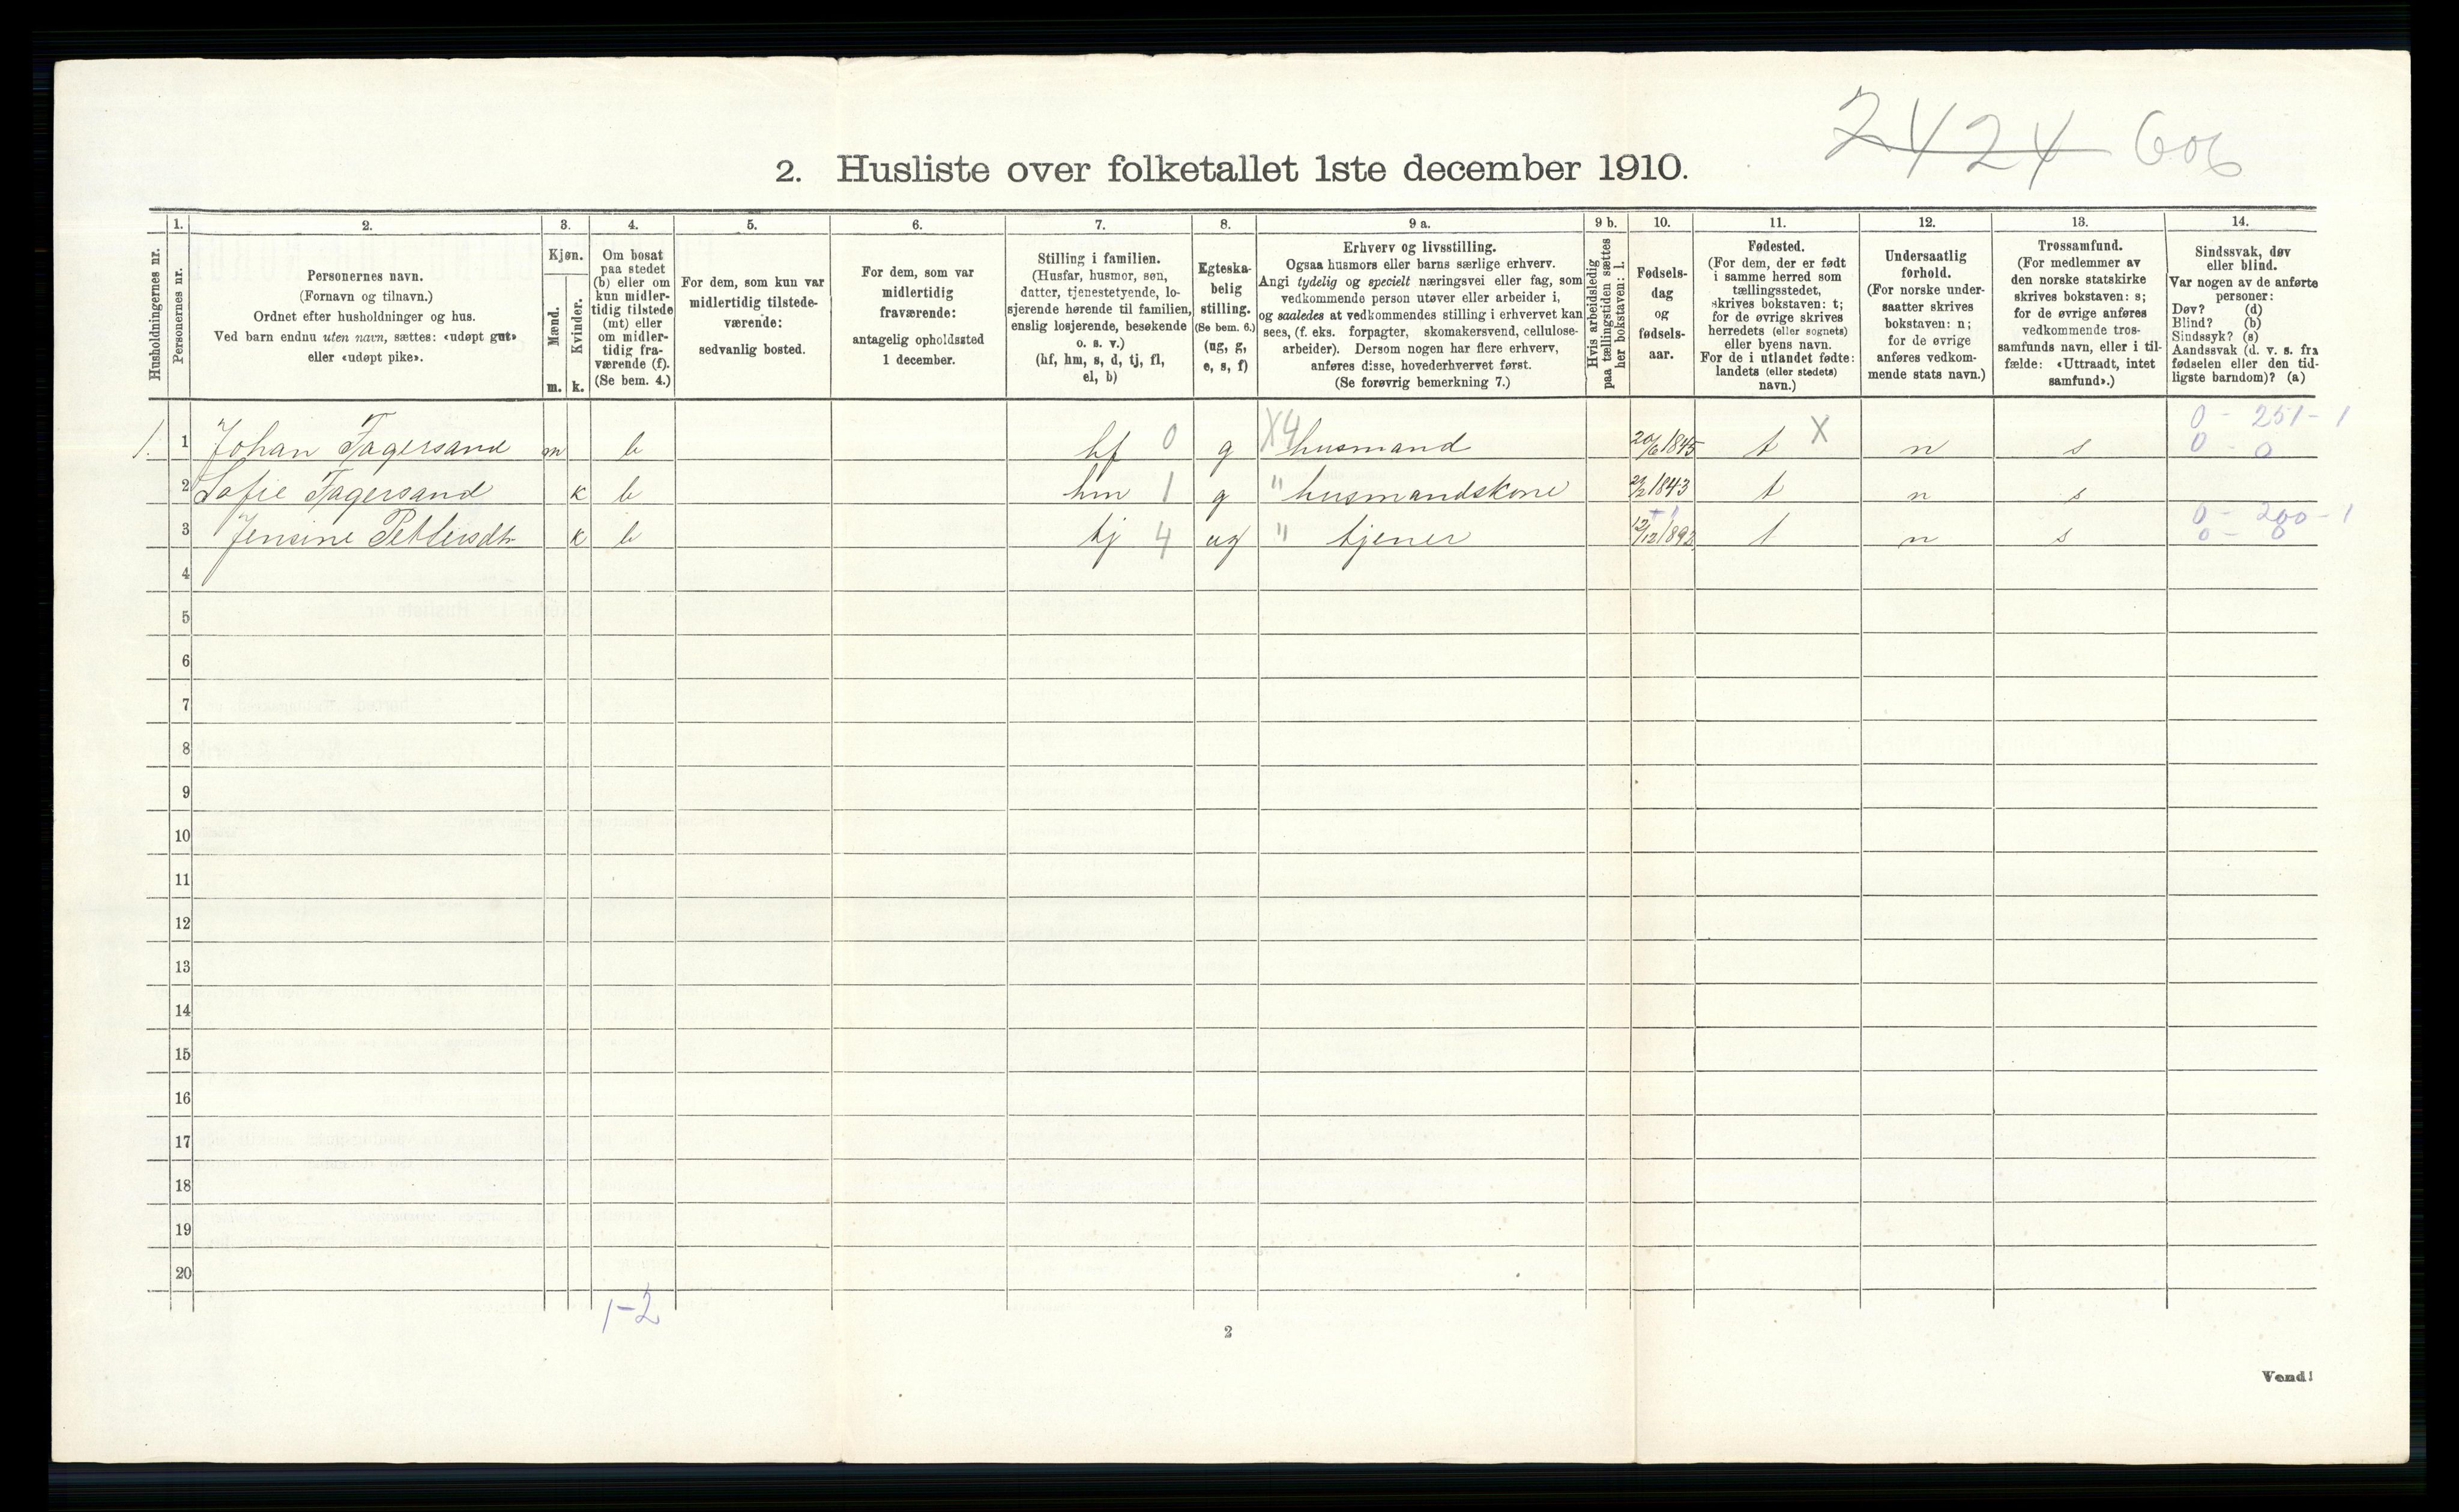 2424 606
2. Husliste over folketallet 1ste december 1910.
Husholdningernes nr.
1.
Personernes nr.
2.
Personernes navn.
(Fornavn og tilnavn.)
Ordnet efter husholdninger og hus.
Ved barn endnu uten navn, sættes: «udøpt gut»
eller «udøpt pike».
3.
Kjøn.
Mænd.
m.
Kvinder.
k.
4.
Om bosat
paa stedet
(b) eller om
kun midler-
tidig tilstede
(mt) eller
om midler-
tidig fra-
værende (f).
(Se bem. 4.)
5.
For dem, som kun var
midlertidig tilstede-
værende:
sedvanlig bosted.
6.
For dem, som var
midlertidig
fraværende:
antagelig opholdssted
1 december.
7.
Stilling i familien.
(Husfar, husmor, søn,
datter, tjenestetyende, lo-
sjerende hørende til familien,
enslig losjerende, besøkende
o. s. v.)
(hf, hm, s, d, tj, fl,
el, b)
8.
Egteska-
belig
stilling.
(Se bem. 6.)
(ug, g,
e, s, f)
9 a.
Erhverv og livsstilling.
Ogsaa husmors eller barns særlige erhverv.
Angi tydelig og specielt næringsvei eller fag, som
vedkommende person utøver eller arbeider i,
og saaledes at vedkommendes stilling i erhvervet kan
sees, (f. eks. forpagter, skomakersvend, cellulose-
arbeider). Dersom nogen har flere erhverv,
anføres disse, hovederhvervet først.
(Se forøvrig bemerkning 7.)
9 b.
Hvis arbeidsledig
paa tællingstiden sættes
her bokstaven: l.
10.
Fødsels-
dag
og
fødsels-
aar.
11.
Fødested.
(For dem, der er født
i samme herred som
tællingsstedet,
skrives bokstaven: t;
for de øvrige skrives
herredets (eller sognets)
eller byens navn.
For de i utlandet fødte:
landets (eller stedets)
navn.)
12.
Undersaatlig
forhold.
(For norske under-
saatter skrives
bokstaven: n;
for de øvrige
anføres vedkom-
mende stats navn.)
13.
Trossamfund.
(For medlemmer av
den norske statskirke
skrives bokstaven: s;
for de øvrige anføres
vedkommende tros-
samfunds navn, eller i til-
fælde: «Uttraadt, intet
samfund».)
14.
Sindssvak, døv
eller blind.
Var nogen av de anførte
personer:
Døv? (d)
Blind? (b)
Sindssyk? (s)
Aandssvak (d. v. s. fra
fødselen eller den tid-
ligste barndom)? (a)
0 - 251 - 1
1. 1 Johan Fagersand m b hf 0 g X4 husmand 20/6 1845 t X n s 0 - 0
2 Sofie Fagersand k b hm 1 g " husmandskone 1843 t n s
0 - 200 - 1
3 Jensine Pettersdtr k b tj 4 ug " tjener 12/12 1892 t n s 0 - 0
4
5
6
7
8
9
10
11
12
13
14
15
16
17
18
19
20
1-2
2
Vend!